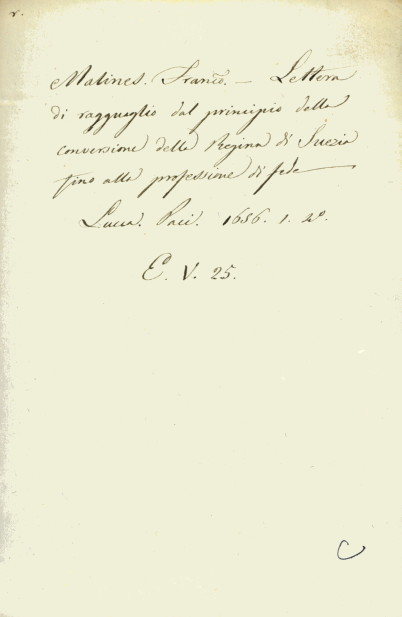 r.
Malines. Franc̃o. — Lettera
di ragguaglio dal principio della
conversione della Regina di Suezia
fino alla professione di fede
Lucca. Paci. 1656. 1. 4º.
E. V. 25.
C